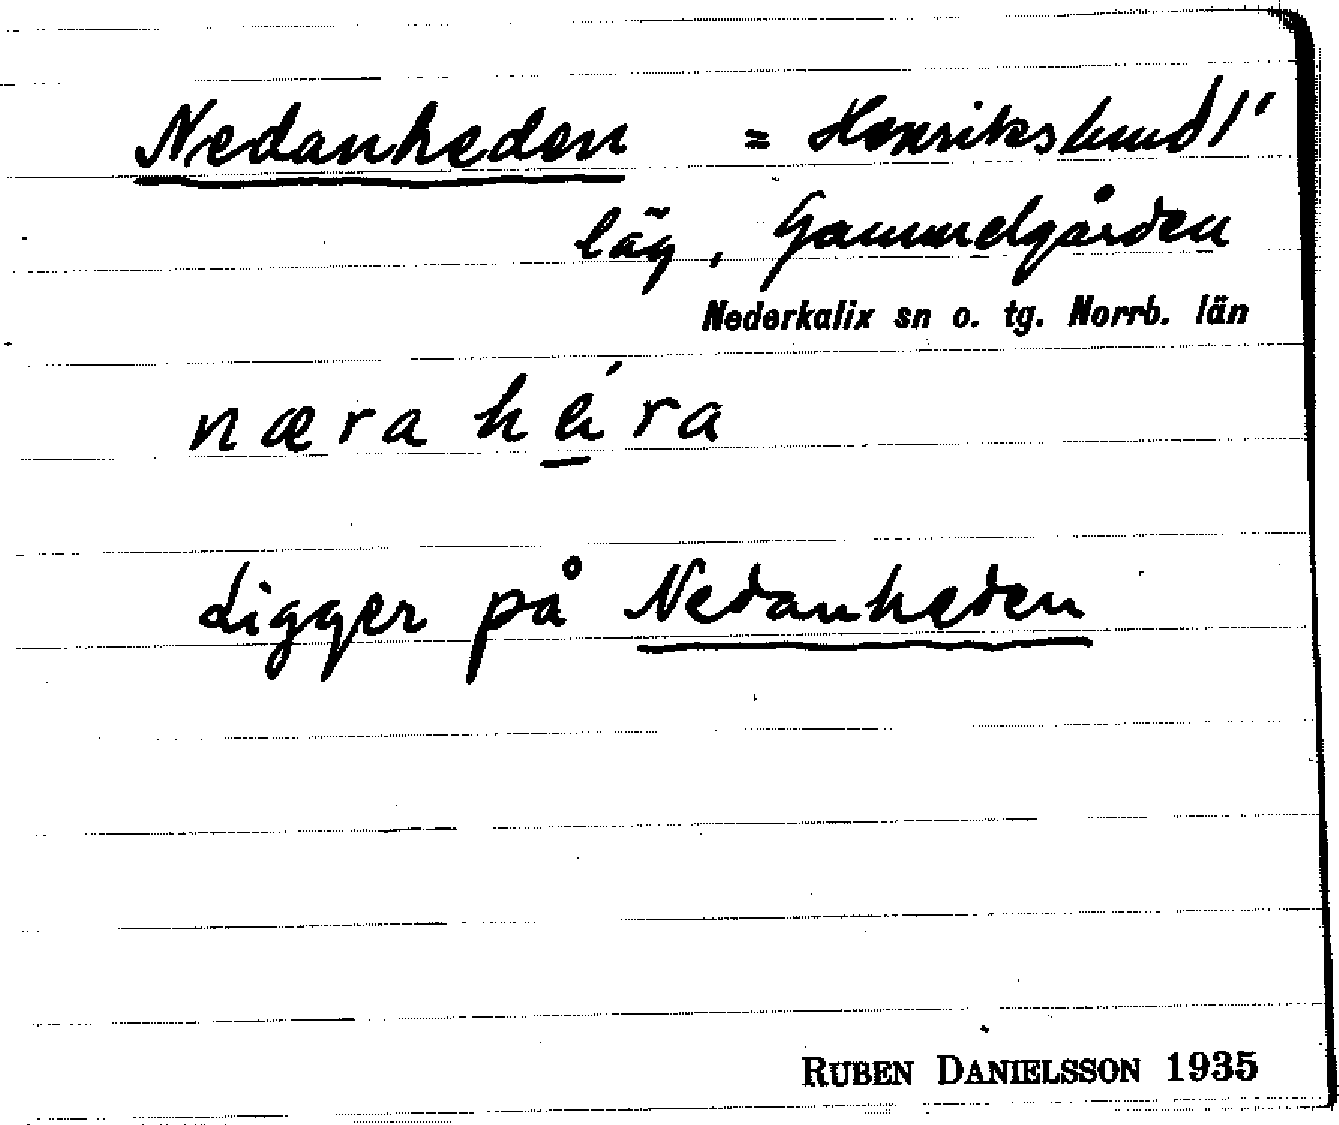 Nedanheden = Henrikslund 1'
läg, Gammelgården
Nederkalix sn o. tg. Norrb. län
næra héra
Ligger på Nedanheden
RUBEN DANIELSSON 1935